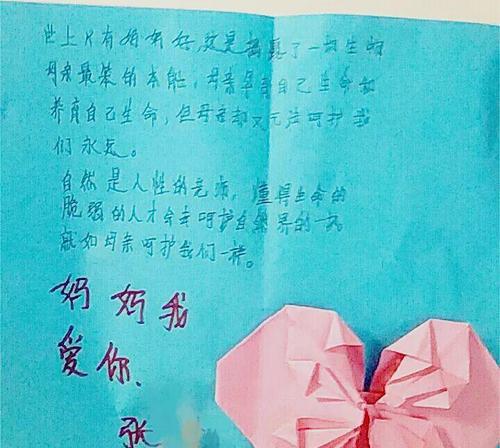 世上只有妈妈好,这是揭露了一切生物
母亲最笨的本能,母亲孕育自己生命和
养育自己生命,但母亲却又无法呵护我
们永远。
自然是人性的光晖,懂得生命的
脆弱的人才会去呵护自然界的一切
就如母亲呵护我们一样。
妈妈我
爱你、
张